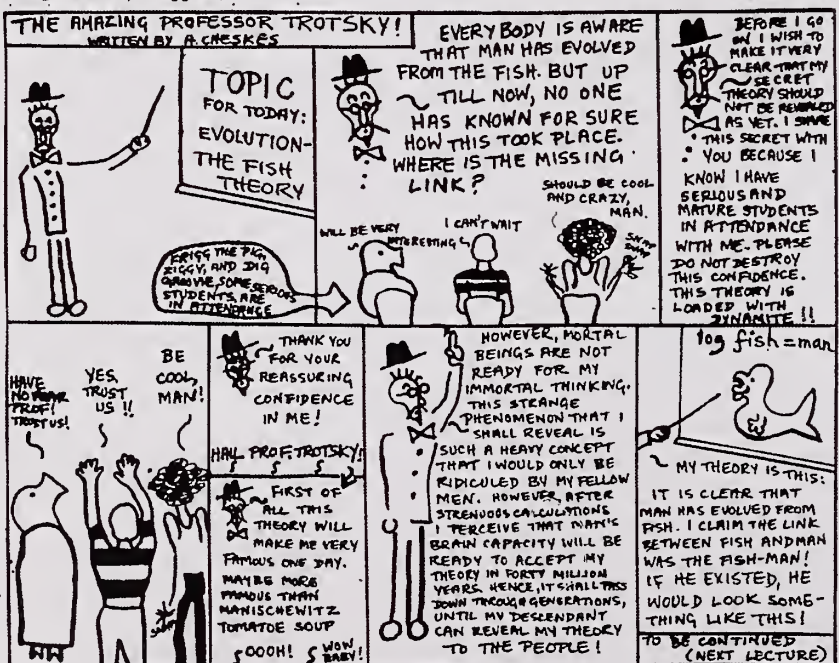 THE AMAZING PROFESSOR TROTSKY!
WRITTEN BY A. CHESKES
TOPIC
FOR TODAY:
EVOLUTION-
THE FISH
THEORY
FRIGG THE PIG,
ZIGGY, AND DIG
GROOVIE, SOME SERIOUS
STUDENTS, ARE
IN ATTENDANCE
EVERYBODY IS AWARE
THAT MAN HAS EVOLVED
FROM THE FISH. BUT UP
TILL NOW, NO ONE
HAS KNOWN FOR SURE
HOW THIS TOOK PLACE.
WHERE IS THE MISSING
LINK?
WILL BE VERY
INTERESTING
I CAN'T WAIT
SHOULD BE COOL
AND CRAZY,
MAN.
SNAP
SNAP
BEFORE I GO
ON I WISH TO
MAKE IT VERY
CLEAR THAT MY
SECRET
THEORY SHOULD
NOT BE REVEALED
AS YET. I SHARE
THIS SECRET WITH
YOU BECAUSE I
KNOW I HAVE
SERIOUS AND
MATURE STUDENTS
IN ATTENDANCE
WITH ME. PLEASE
DO NOT DESTROY
THIS CONFIDENCE.
THIS THEORY IS
LOADED WITH
DYNAMITE!!
HAVE
NO FEAR
PROF!
TRUST US!
YES,
TRUST
US!!
BE
COOL,
MAN!
SNAP
THANK YOU
FOR YOUR
REASSURING
CONFIDENCE
IN ME!
HAIL PROF. TROTSKY!
FIRST OF
ALL THIS
THEORY WILL
MAKE ME VERY
FAMOUS ONE DAY.
MAYBE MORE
FAMOUS THAN
MANISCHEWITZ
TOMATOE SOUP
OOOH!
WOW
BABY!
HOWEVER, MORTAL
BEINGS ARE NOT
READY FOR MY
IMMORTAL THINKING.
THIS STRANGE
PHENOMENON THAT I
SHALL REVEAL IS
SUCH A HEAVY CONCEPT
THAT I WOULD ONLY BE
RIDICULED BY MY FELLOW
MEN. HOWEVER, AFTER
STRENUOUS CALCULATIONS
I PERCEIVE THAT MAN'S
BRAIN CAPACITY WILL BE
READY TO ACCEPT MY
THEORY IN FORTY MILLION
YEARS. HENCE, IT SHALL PASS
DOWN THROUGH GENERATIONS,
UNTIL MY DESCENDANT
CAN REVEAL MY THEORY
TO THE PEOPLE!
log fish = man
MY THEORY IS THIS:
IT IS CLEAR THAT
MAN HAS EVOLVED FROM
FISH. I CLAIM THE LINK
BETWEEN FISH AND MAN
WAS THE FISH-MAN!
IF HE EXISTED, HE
WOULD LOOK SOME-
THING LIKE THIS!
TO BE CONTINUED
(NEXT LECTURE)